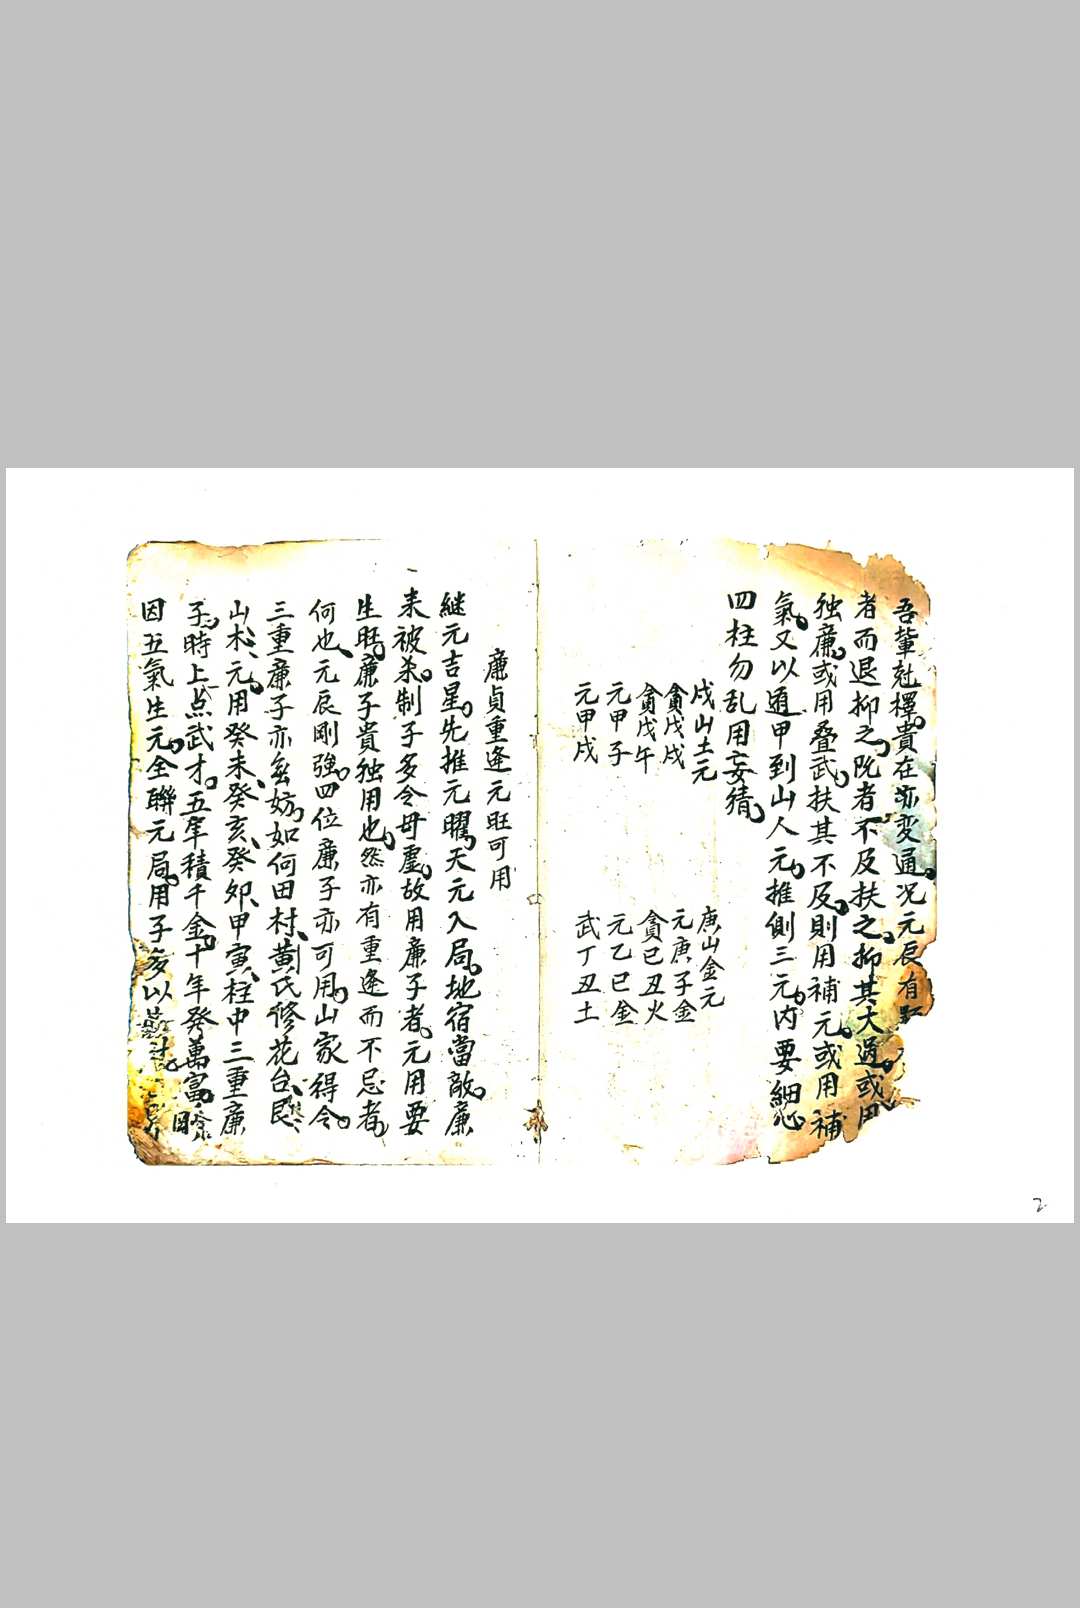 吾輩尅擇。貴在亦変通。况元辰有
者而退抑之。阮者不及扶之。抑其大過。或用
独廉。或用叠武。扶其不及。則用補元。或用補
氣。又以遁甲到山人元。推側三元。内要細心
四柱勿乱用妄猜。
戌山土元
貪戊戌
貪戊午
元甲子
元甲戌
庚山金元
元庚子金
貪己丑火
元乙巳金
武丁丑土
廉貞重逢元旺可用
継元吉星。先推元曜。天元入局。地宿當敵。廉
来被杀。制子多令母虚。故用廉子者。元用要
生旺。廉子貴独用也。然亦有重逢而不忌者。
何也。元辰剛強。四位廉子亦可用。山家得令。
三重廉子亦無妨。如何田村、黄氏修花台、艮
山木、元。用癸未、癸亥、癸卯、甲寅、柱中三重廉
子。時上点武才。五年積千金。十年發萬富。
因五氣生元。全聯元局。用子多以
2